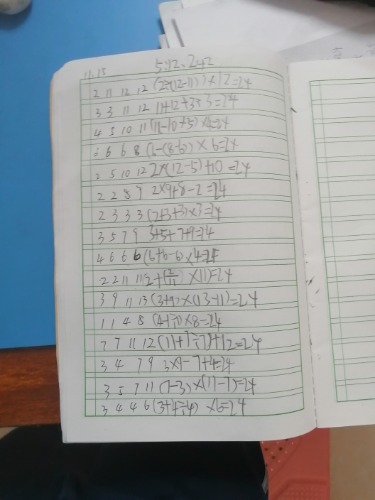 11.15 5:12, 242
2 11 12 12 (2÷(12-11))×12=24
3 3 11 12 11+12+3÷3=24
4 5 10 11 (11-10+5)×4=24
6 6 6 8 (6-(8-6))×6=24
2 5 10 12 2×(12-5)+10=24
2 2 8 9 2×9+8-2=24
2 3 3 3 (2+3+3)×3=24
3 5 7 9 3+5+7+9=24
4 6 6 6 (6+6-6)×4=24
2 2 11 11 (2+2/11)×11=24
3 9 11 13 (3+9)×(13-11)=24
1 1 4 8 (4-1÷1)×8=24
7 7 11 12 (11+7÷7)+12=24
3 4 7 9 3×9-7+4=24
3 5 7 11 ×(11-7)=24
3 4 4 6 (3+4÷4)×6=24